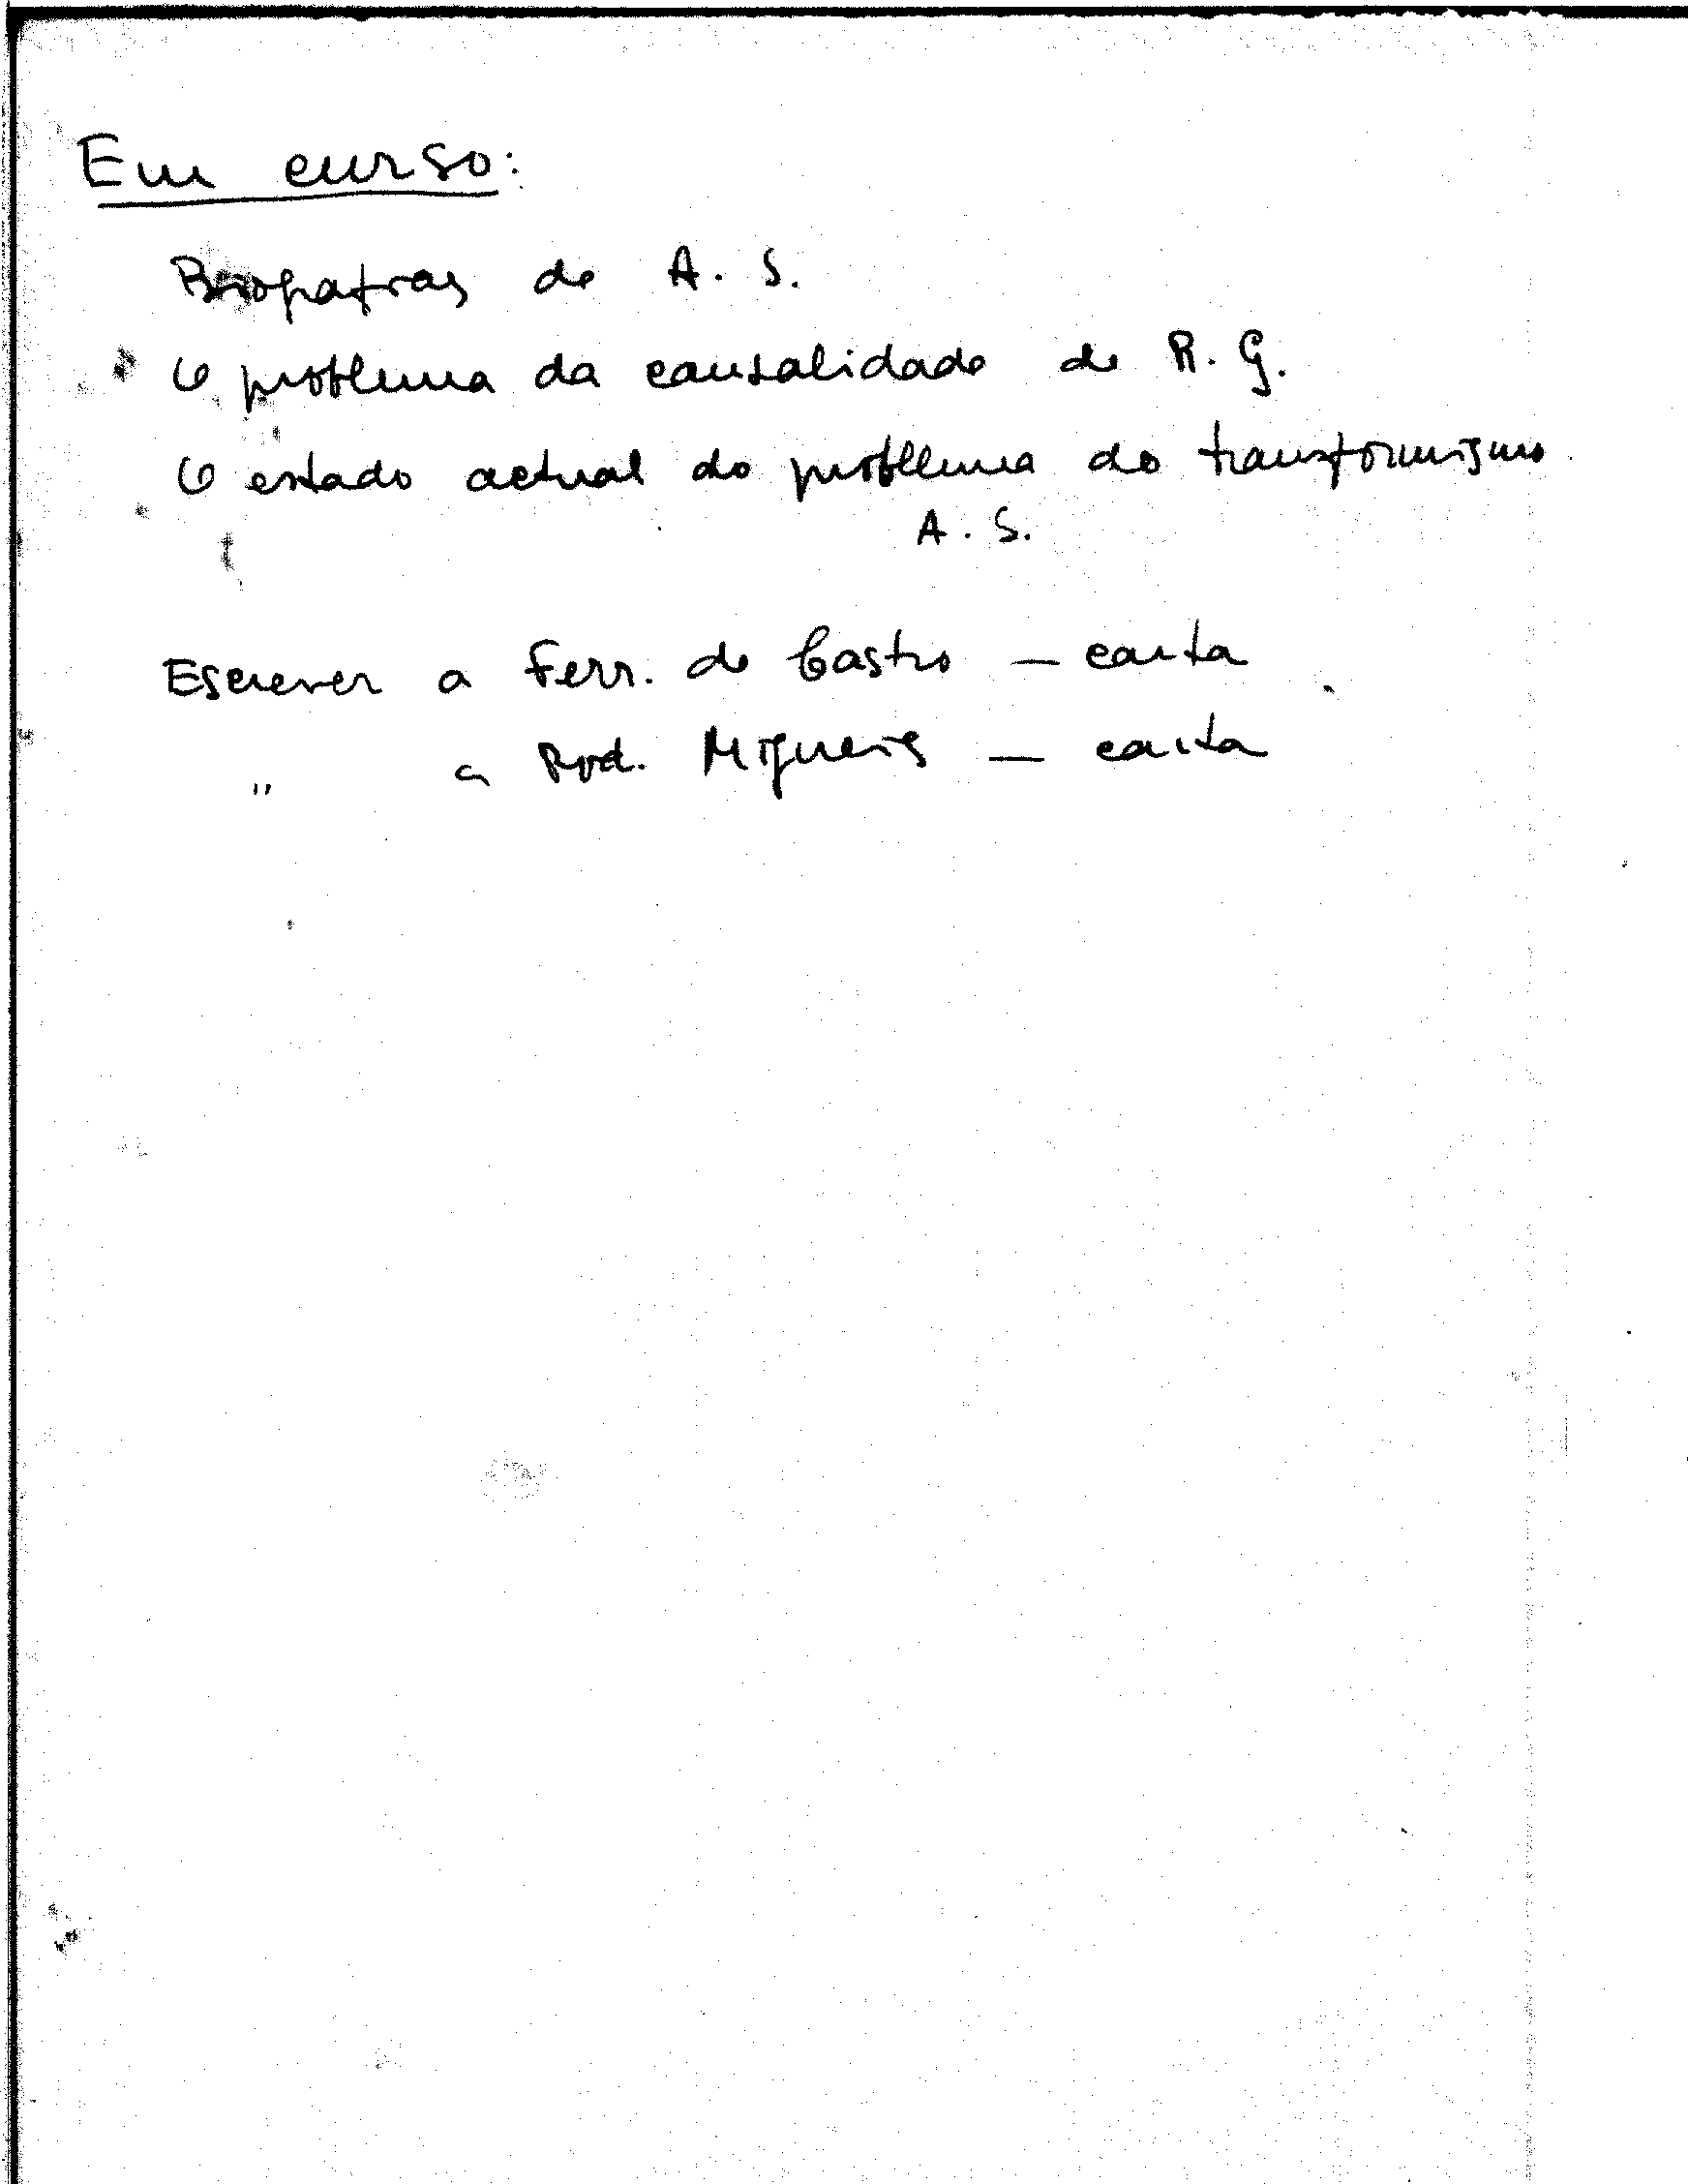 Em curso:
Biografias de A. S.
O problema da causalidade de R. G.
O estado actual do problema do transformismo
A. S.
Escrever a Ferr. de Castro — carta
" a Rod. Miguéis — carta